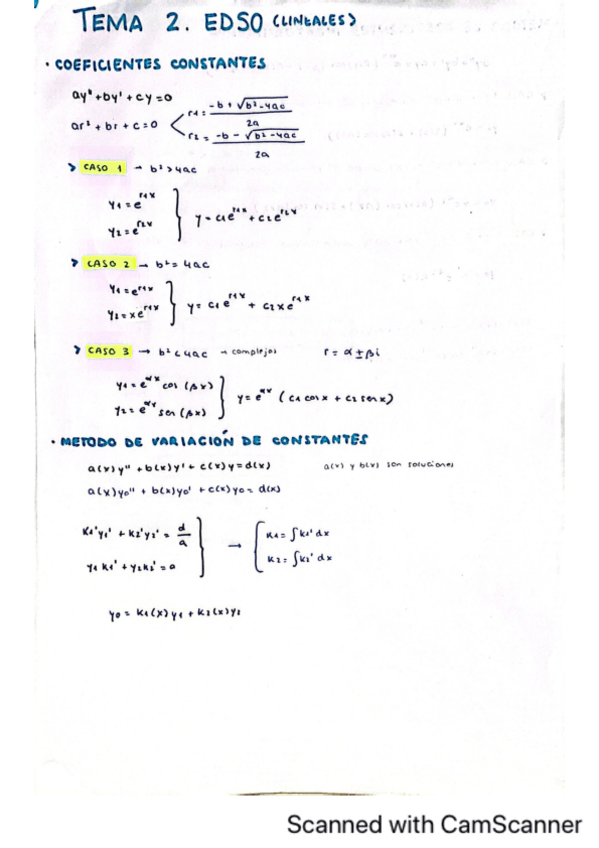 TEMA 2. EDSO (LINEALES)
· COEFICIENTES CONSTANTES
ay" + by' + cy = 0
ar² + br + c = 0 < r1 = (-b + √(b²-4ac)) / 2a
r2 = (-b - √(b²-4ac)) / 2a
> CASO 1 → b² > 4ac
y1 = e^(r1x)
y2 = e^(r2x) } y = c1e^(r1x) + c2e^(r2x)
> CASO 2 → b² = 4ac
y1 = e^(r1x)
y2 = xe^(r1x) } y = c1e^(r1x) + c2xe^(r1x)
> CASO 3 → b² < 4ac → complejos r = α ± βi
y1 = e^(αx) cos (βx)
y2 = e^(αx) sen (βx) } y = e^(αx) (c1 cos x + c2 sen x)
· METODO DE VARIACIÓN DE CONSTANTES
a(x)y" + b(x)y' + c(x)y = d(x) a(x) y b(x) son soluciones
a(x)y0" + b(x)y0' + c(x)y0 = d(x)
k1'y1' + k2'y2' = d/a
y1k1' + y2k2' = 0 } → { k1 = ∫k1' dx
k2 = ∫k2' dx
y0 = k1(x)y1 + k2(x)y2
Scanned with CamScanner